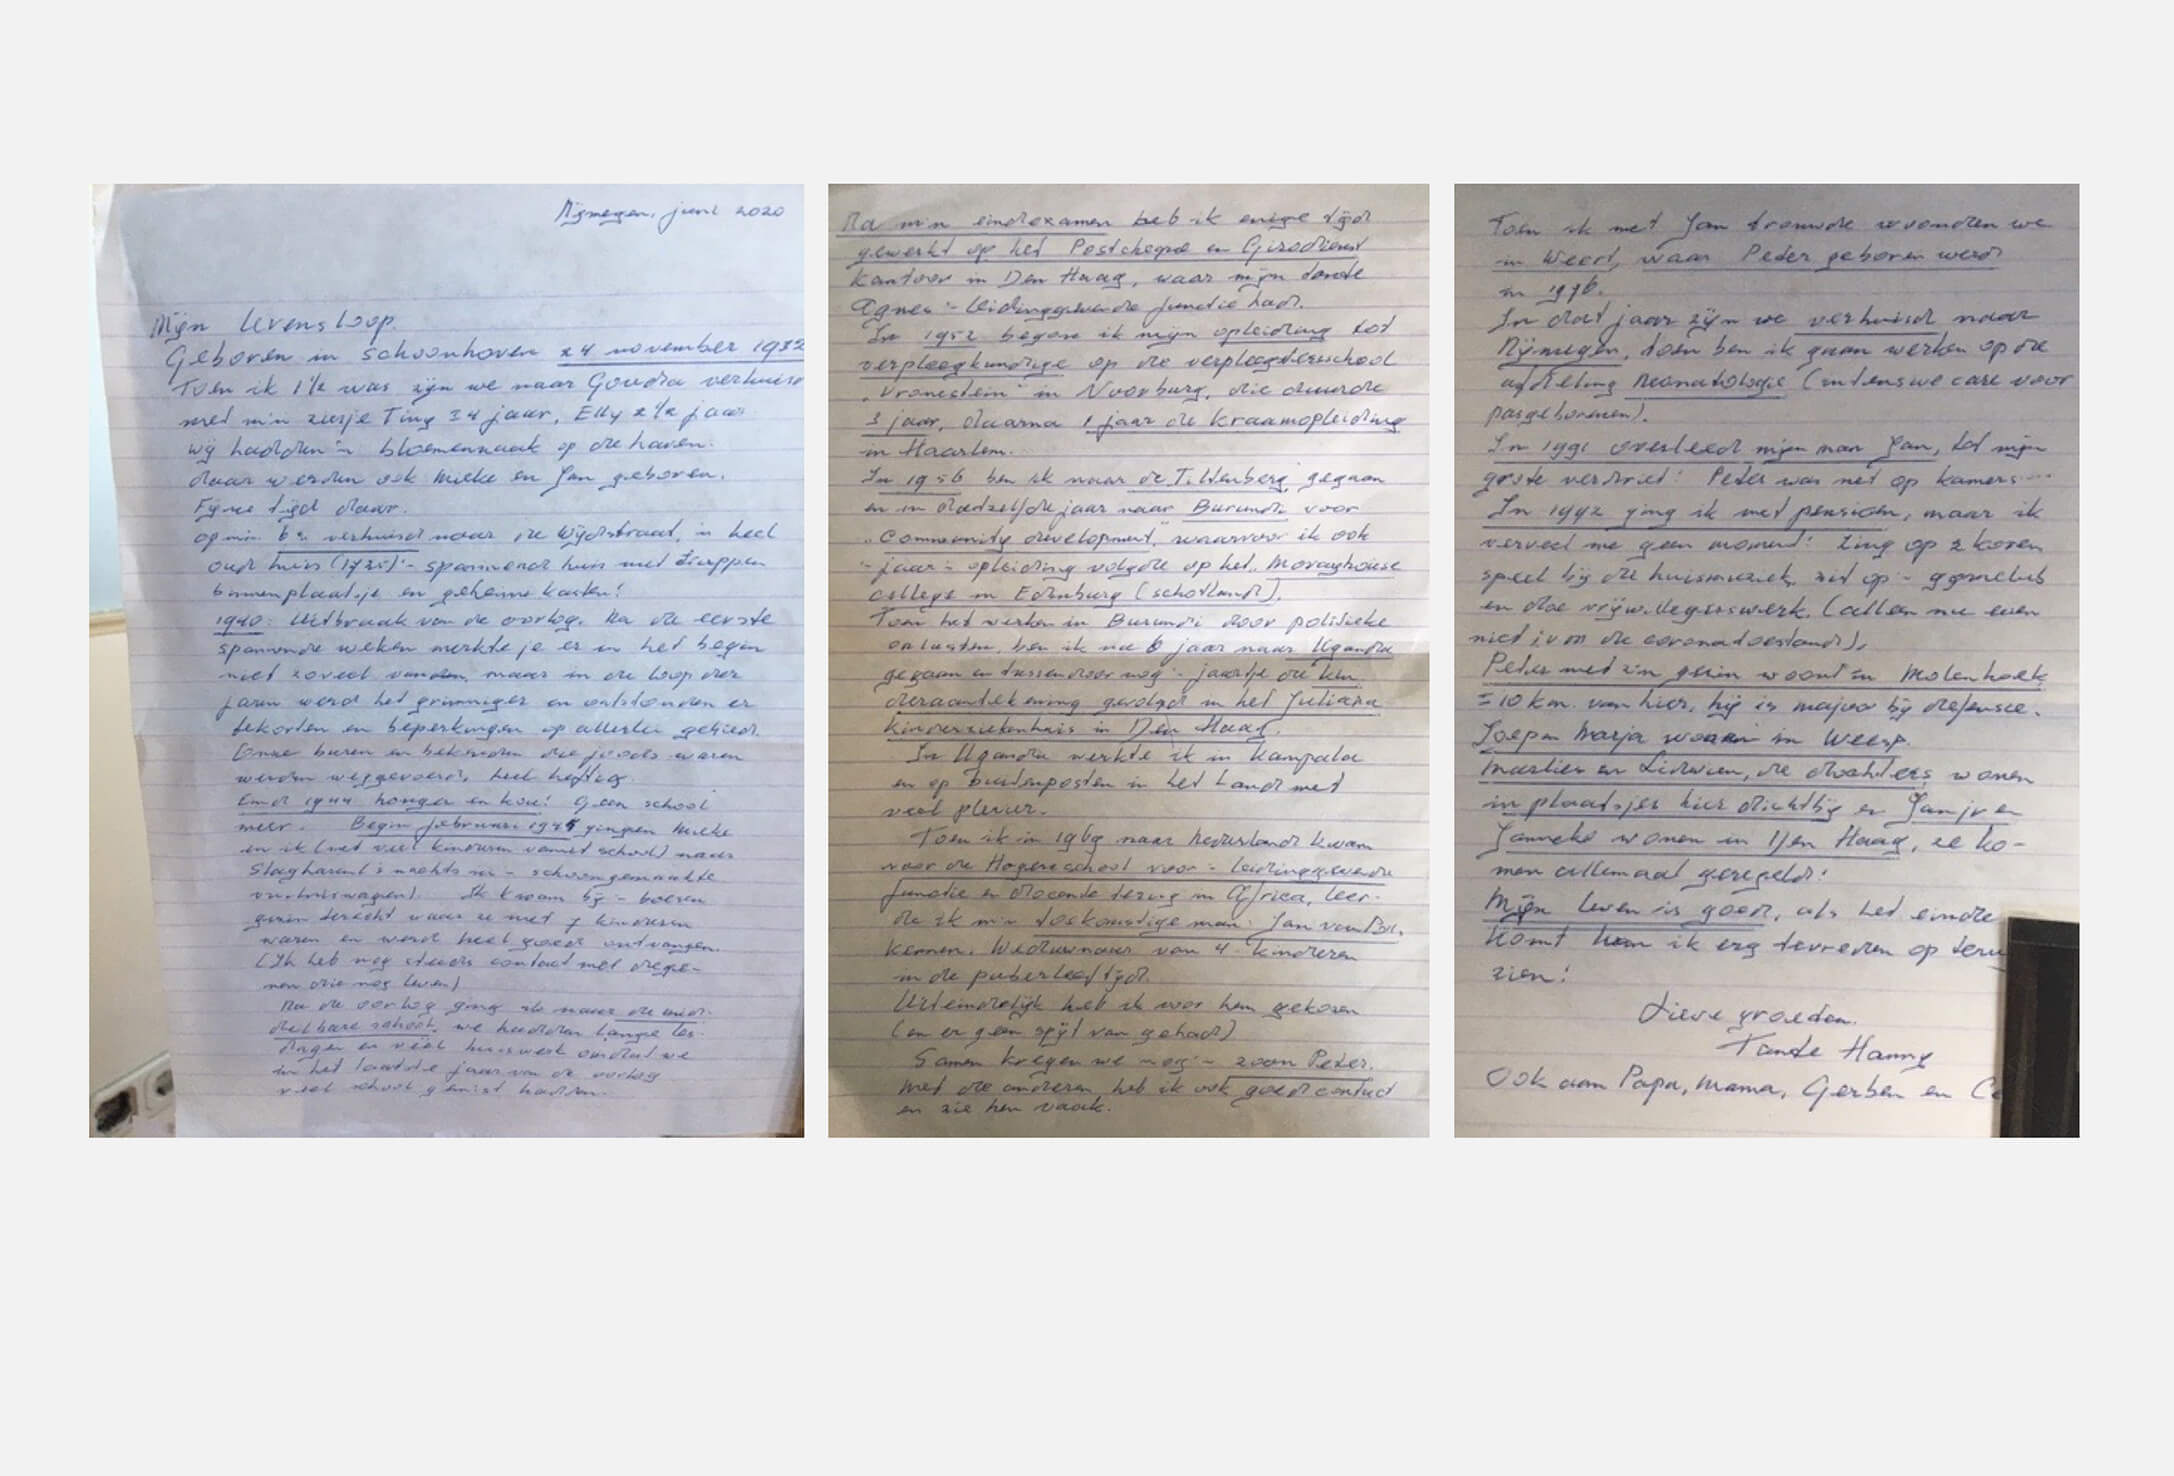 Nijmegen, juni 2020
Mijn levensloop.
Geboren in Schoonhoven 24 november 1932
Toen ik 1½ was zijn we naar Gouda verhuisd
met m'n zusje Tiny 34 jaar, Elly 2½ jaar
Wij hadden 'n bloemenzaak op de haven.
daar werden ook Mieke en Jan geboren.
Fijne tijd daar.
op min 6e verhuisd naar de Wijdstraat, 'n heel
oud huis (1725) - spannend huis met trappen
binnenplaatsje en geheime kasten!
1940: Uitbraak van de oorlog. Na de eerste
spannende weken merkte je er in het begin
niet zoveel van, maar in de loop der
jaren werd het grimmiger en ontstonden er
tekorten en beperkingen op allerlei gebied.
Onze buren en bekenden die joods waren
werden weggevoerd, heel heftig.
Eind 1944 honger en kou! Geen school
meer. Begin februari 1945 gingen Mieke
en ik (met veel kinderen vanuit school) naar
Slagharen ('s nachts in 'n schoongemaakte
Ik kwam bij 'n boeren
gezin terecht waar ze met 7 kinderen
waren en werd heel goed ontvangen.
(Ik heb nog steeds contact met dege-
nen die nog leven)
Na de oorlog ging ik naar de mid-
delbare school, we hadden lange les-
dagen en véél huiswerk omdat we
in het laatste jaar van de oorlog
veel school gemist hadden.
Na m'n eindexamen heb ik enige tijd
gewerkt op het Postcheque en Girodienst
kantoor in Den Haag, waar mijn tante
Agnes 'n leidinggevende functie had.
In 1952 begon ik mijn opleiding tot
verpleegkundige op de verpleegstersschool
"Vronestein" in Voorburg, die duurde
3 jaar, daarna 1 jaar de kraamopleiding
in Haarlem.
In 1956 ben ik naar de Tiltenberg gegaan
en in datzelfde jaar naar Burundi voor
"Community development", waarvoor ik ook
'n jaar 'n opleiding volgde op het "Morayhouse
college in Edinburg (Schotland).
Toen het werken in Burundi door politieke
onlusten, ben ik na 6 jaar naar Uganda
gegaan en tussendoor nog 'n jaartje de kin-
deraantekening gevolgd in het Juliana
kinderziekenhuis in Den Haag.
In Uganda werkte ik in Kampala
en op buitenposten in het land met
veel plezier.
Toen ik in 1969 naar Nederland kwam
voor de Hogere school voor 'n leidinggevende
functie en docente terug in Africa, leer-
de ik m'n toekomstige man Jan van
kennen. Weduwnaar van 4 kinderen
in de puberleeftijd.
Uiteindelijk heb ik voor hem gekozen
(en er geen spijt van gehad)
Samen kregen we nog 'n zoon Peter.
Met de anderen heb ik ook goed contact
en zie hen vaak.
Toen ik met Jan trouwde woonden we
in Weert, waar Peter geboren werd
in 1976.
In dat jaar zijn we verhuisd naar
Nijmegen, toen ben ik gaan werken op de
afdeling Neonatologie (intensive care voor
pasgeborenen).
In 1991 overleed mijn man Jan, tot mijn
grote verdriet! Peter was net op kamers....
In 1992 ging ik met pensioen, maar ik
verveel me geen moment! Zing op 2 koren
speel bij de huismuziek, zit op 'n gymclub
en doe vrijwilligerswerk. (alleen nu even
niet i.v.m de coronatoestand),
Peter met z'n gezin woont in Molenhoek
± 10 km. van hier, hij is majoor bij defensie.
Joep en Marja wonen in Weesp.
Marlies en Lidwien, de dochters wonen
in plaatsjes hier dichtbij en Jan jr en
Janneke wonen in Den Haag, ze ko-
men allemaal geregeld!
Mijn leven is goed, als het einde
komt kan ik erg tevreden op teru
zien!
Lieve groeten.
Tante Hanny
Ook aan Papa, Mama, Gerben en